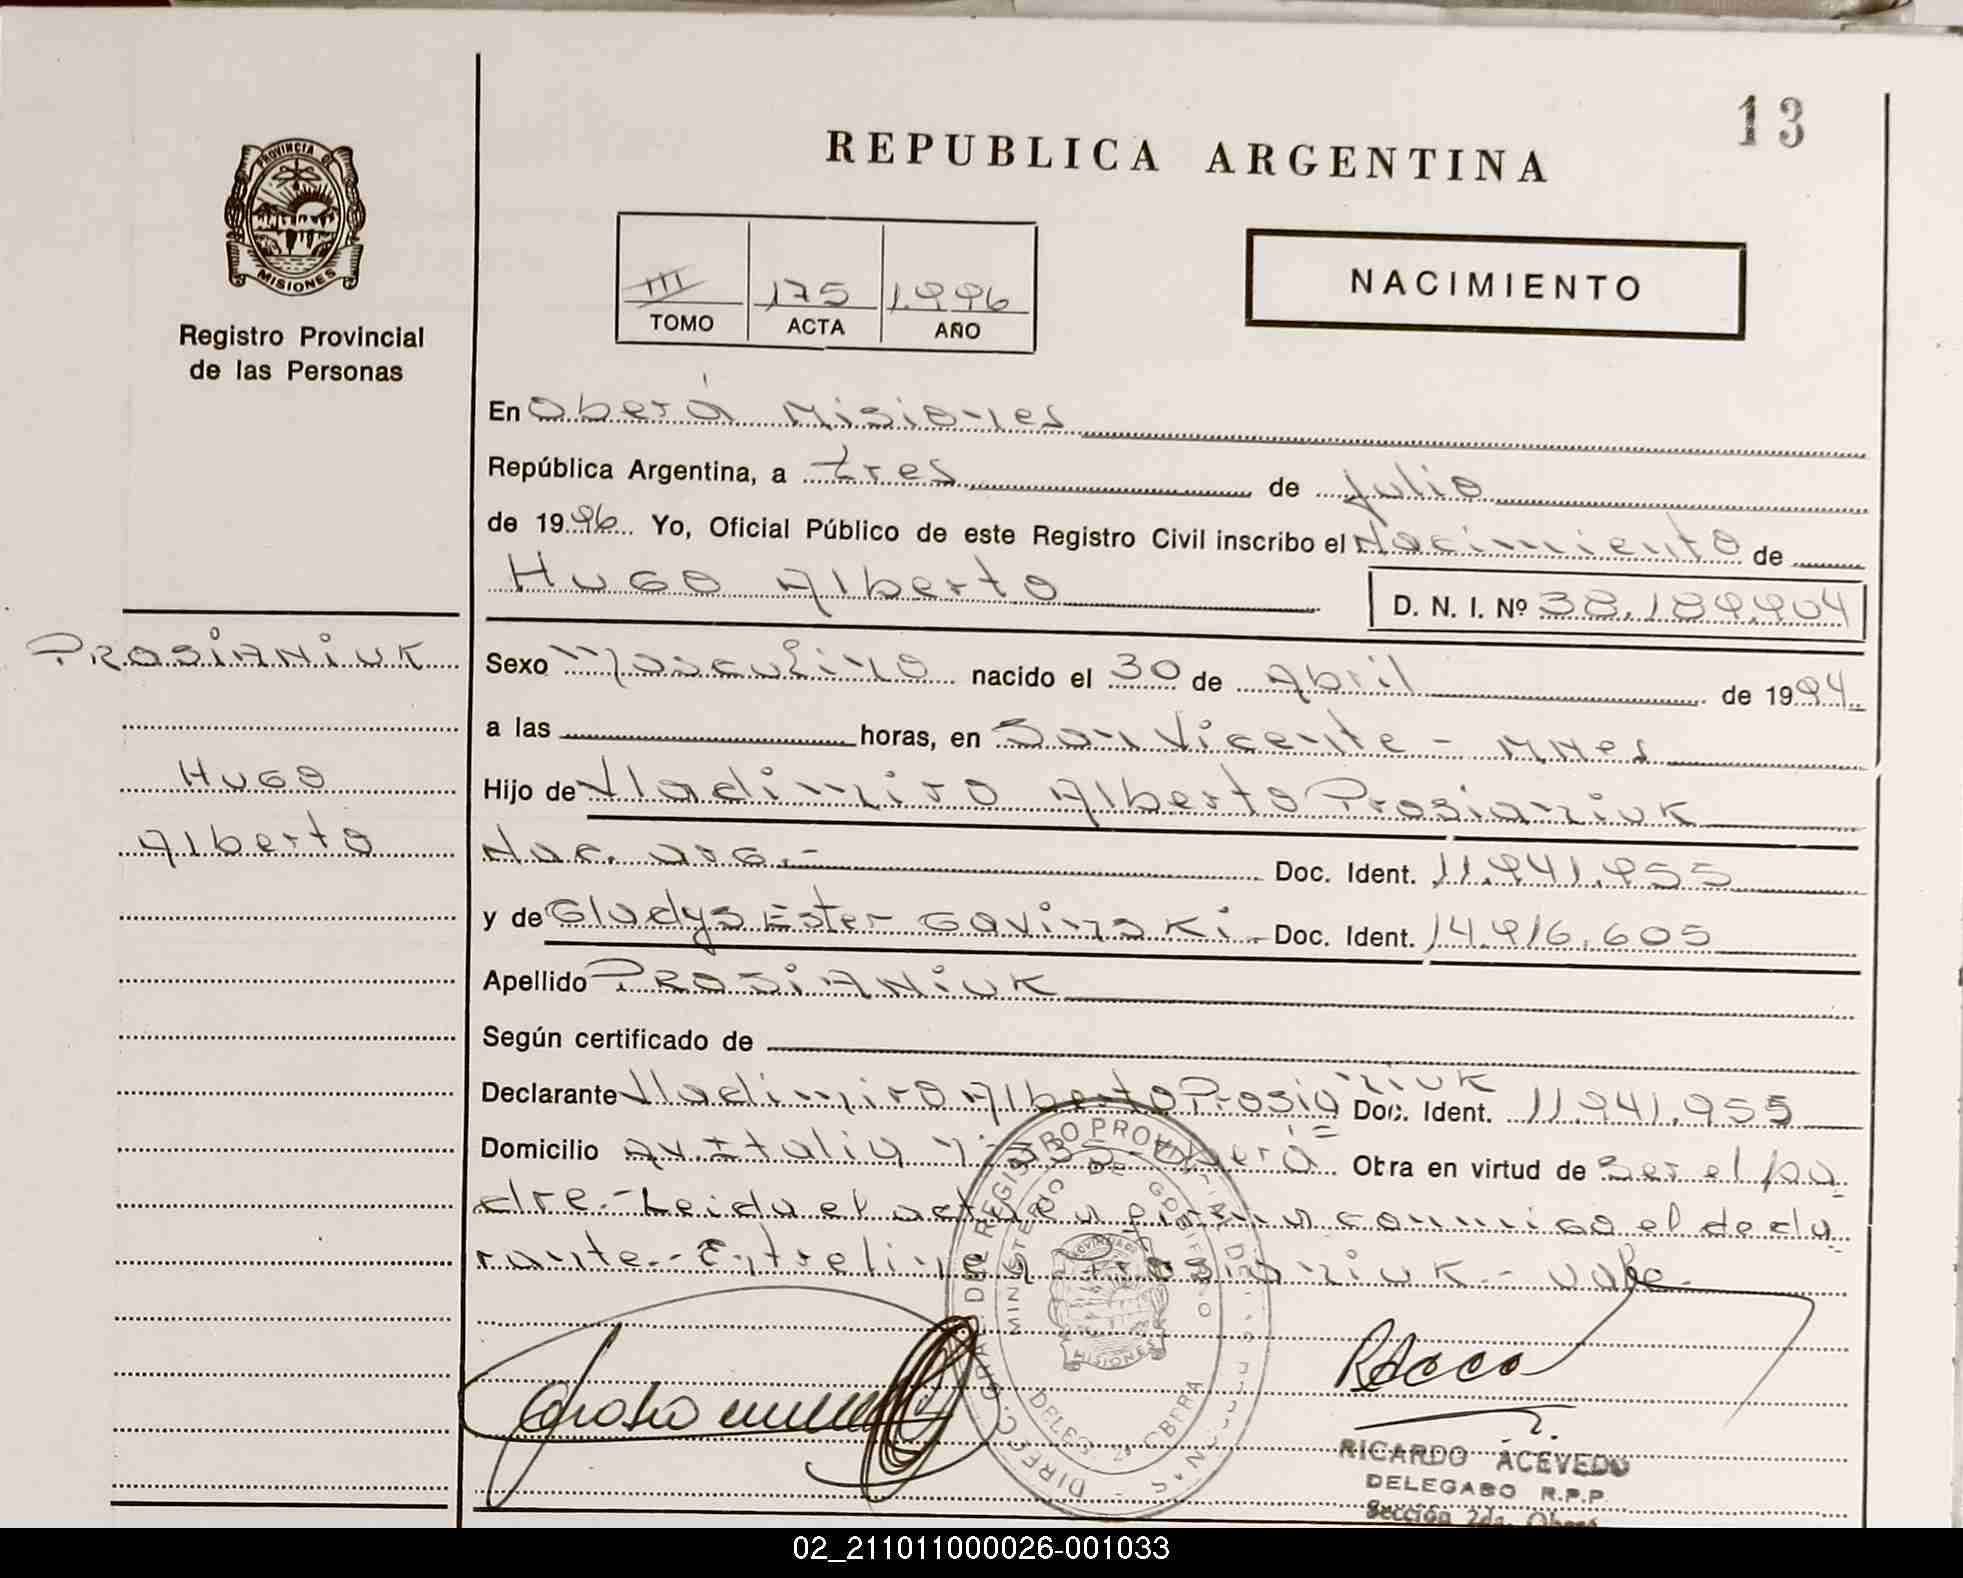 13
REPUBLICA ARGENTINA
PROVINCIA DE
MISIONES
Registro Provincial
de las Personas
III 175 1.996
TOMO ACTA AÑO
NACIMIENTO
En Oberá Misiones
República Argentina, a tres de julio
de 1996 Yo, Oficial Público de este Registro Civil inscribo el Nacimiento de
Hugo Alberto D. N. I. Nº 38.189.904
PROSIANIUK
Hugo
Alberto
Sexo Masculino nacido el 30 de Abril de 1994
a las horas, en San Vicente - Mnes
Hijo de Vladimiro Alberto Prosianiuk
Nac. arg.- Doc. Ident. 11.941.955
y de Gladys Ester Gavinski Doc. Ident. 14.916.605
Apellido PROSIANIUK
Según certificado de
Declarante Vladimiro Alberto Prosianiuk Doc. Ident. 11.941.955
Domicilio Av. Italia Oberá Obra en virtud de ser el pa
dre.- Leida el acta firma conmigo el decla
rante.- Entrelinea Prosianiuk.- vale.
DIRECC. GRAL. DEL REGISTRO PROVINCIAL DE LAS PERSONAS
MINISTERIO DE GOBIERNO
PROVINCIA DE
MISIONES
DELEG. 2ª OBERA
RICARDO ACEVEDO
DELEGADO R.P.P.
Sección 2da. Oberá
02_211011000026-001033